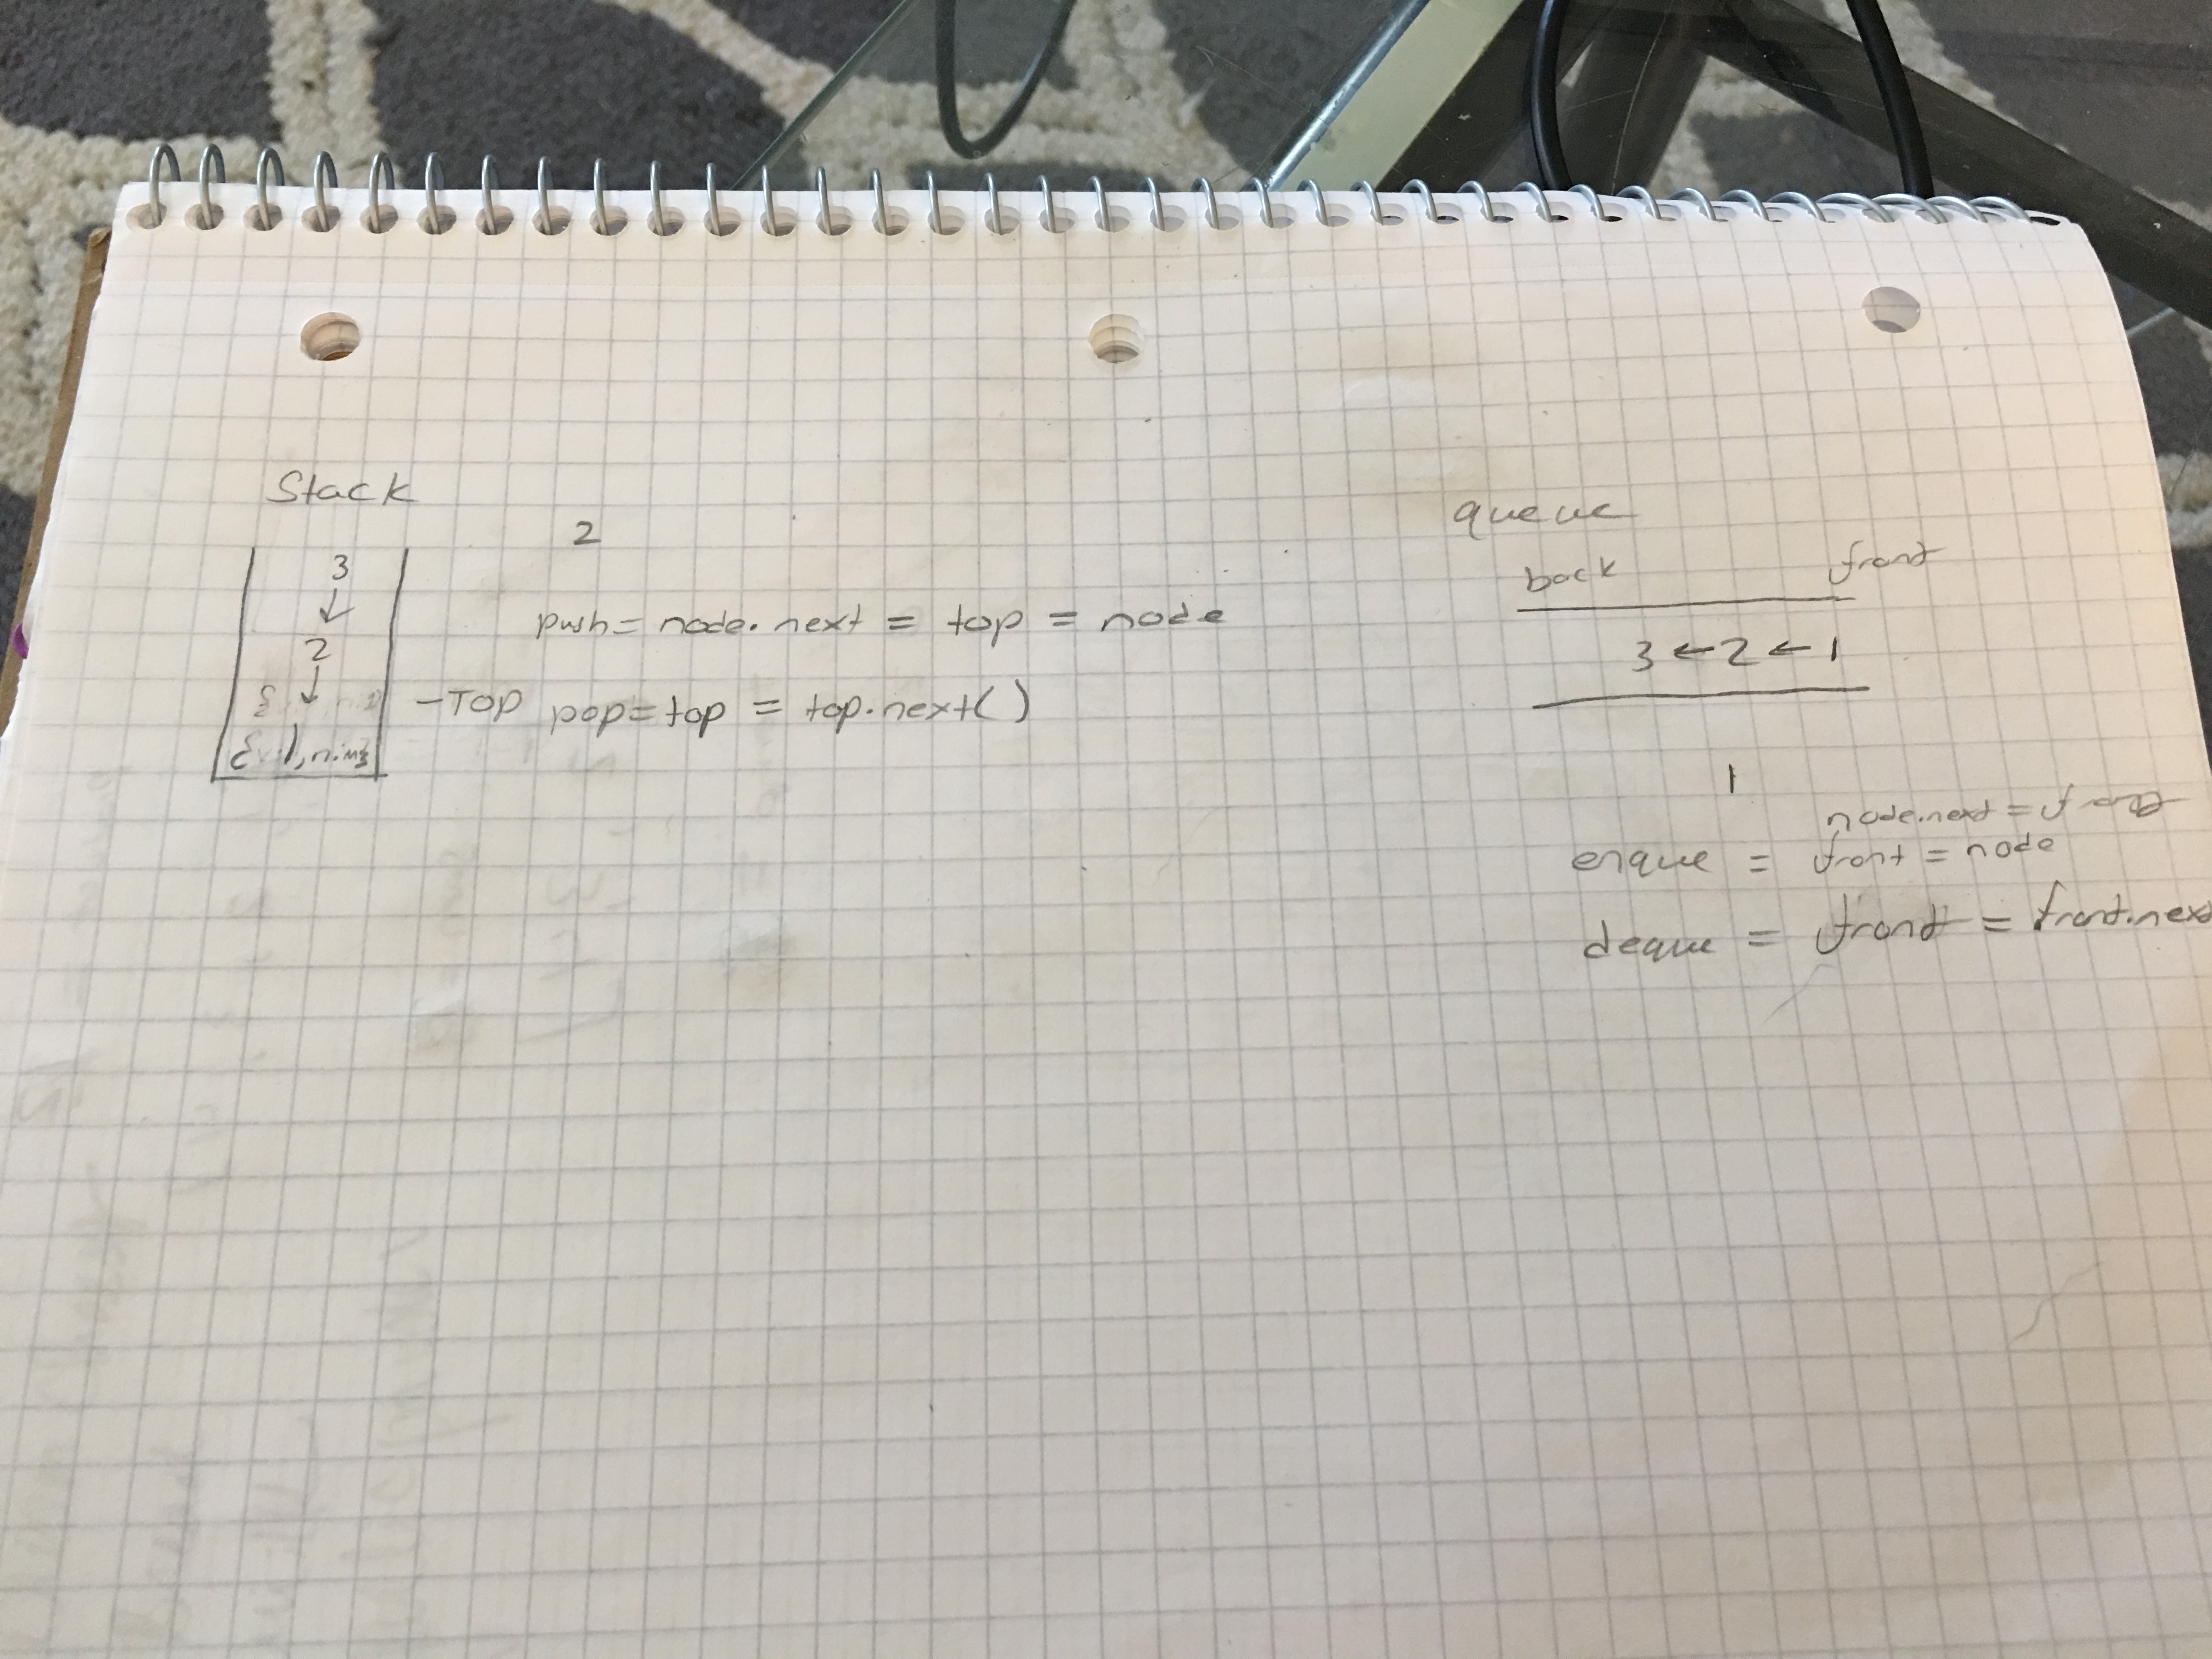 Stack
3
↓
2
↓
2
push = node.next = top = node
-Top pop = top = top.next()
queue
back front
3 ← 2 ← 1
1
node.next = front
enque = front = node
deque = front = front.next